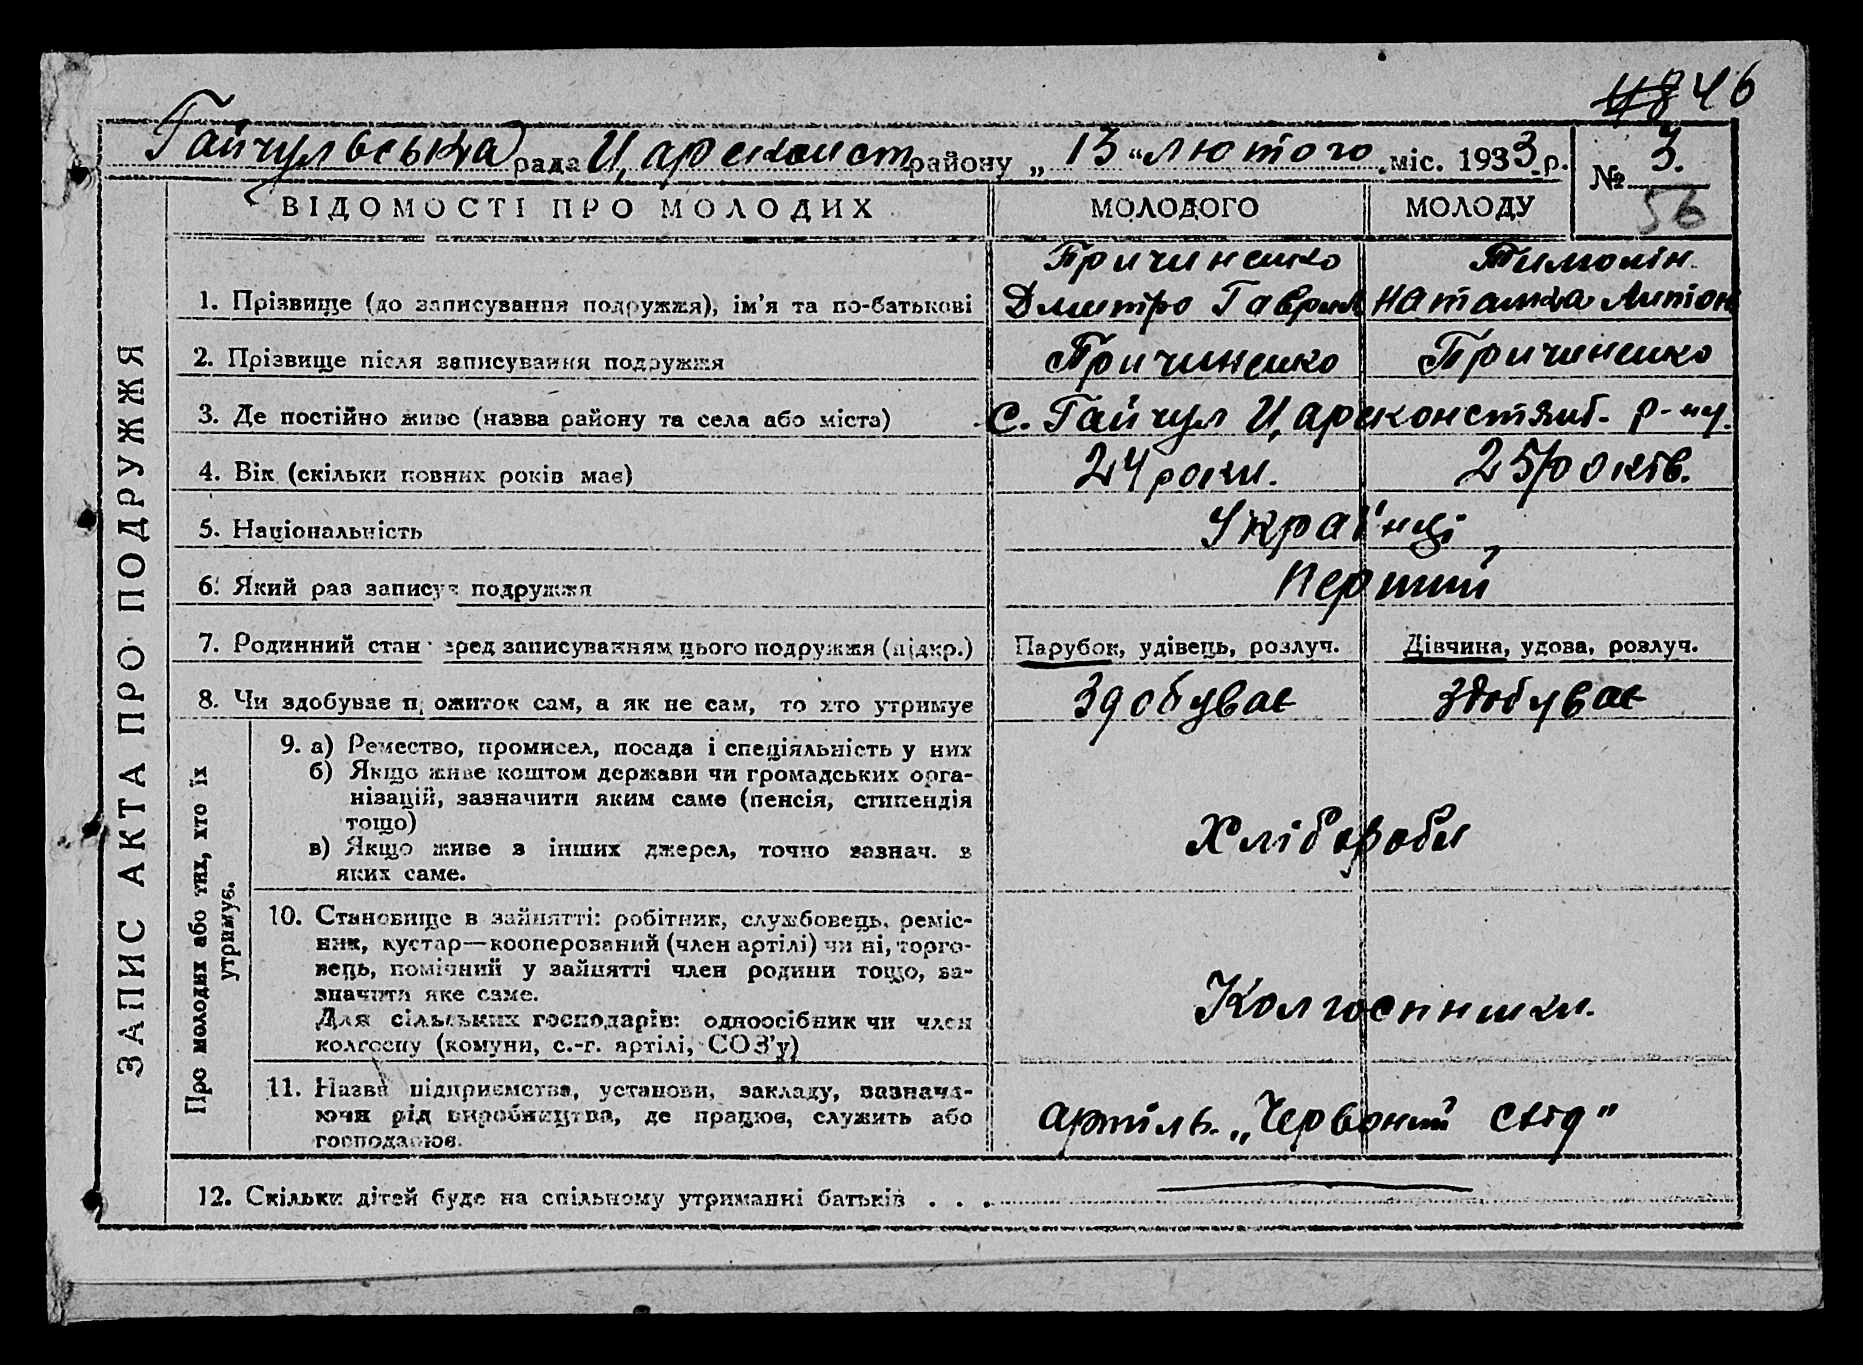 48 46
Гайчульська рада Ц. ареконст району „ 13 “ лютого міс. 1933 р.
№ 3.
56
ВІДОМОСТІ ПРО МОЛОДИХ МОЛОДОГО МОЛОДУ
ЗАПИС АКТА ПРО ПОДРУЖЖЯ
Причиненко Тимошін
1. Прізвище (до записування подружжя), ім’я та по-батькові Дмитро Гаврил Наталка Антон
2. Прізвище після записування подружжя Причиненко Причиненко
3. Де постійно живе (назва району та села або міста) с. Гайчул Ц, ареконстянт. р-ну.
4. Вік (скільки повних років має) 24 роки. 25 років.
5. Національність Українці
6. Який раз записує подружжя Перший
7. Родинний стан перед записуванням цього подружжя (підкр.) Парубок, удівець, розлуч. Дівчина, удова, розлуч.
8. Чи здобуває прожиток сам, а як не сам, то хто утримує Здобуває здобуває
Про молодих або тих, хто їх
утримує.
9. а) Ремество, промисел, посада і спеціяльність у них
б) Якщо живе коштом держави чи громадських орга-
нізацій, зазначити яким саме (пенсія, стипендія
тощо)
в) Якщо живе з інших джерел, точно зазнач. з
яких саме.
Хлібороби
10. Становище в зайнятті: робітник, службовець, реміс-
ник, кустар—кооперований (член артілі) чи ні, торго-
вець, помічний у зайнятті член родини тощо, за-
значити яке саме.
Для сільських господарів: одноосібник чи член
колгоспу (комуни, с.-г. артілі, СОЗ’у)
Колгоспники.
11. Назва підприємства, установи, закладу, зазнача-
ючи рід виробництва, де працює, служить або
господарює.
артіль. „Червоний схід”
12. Скільки дітей буде на спільному утриманні батьків . . .